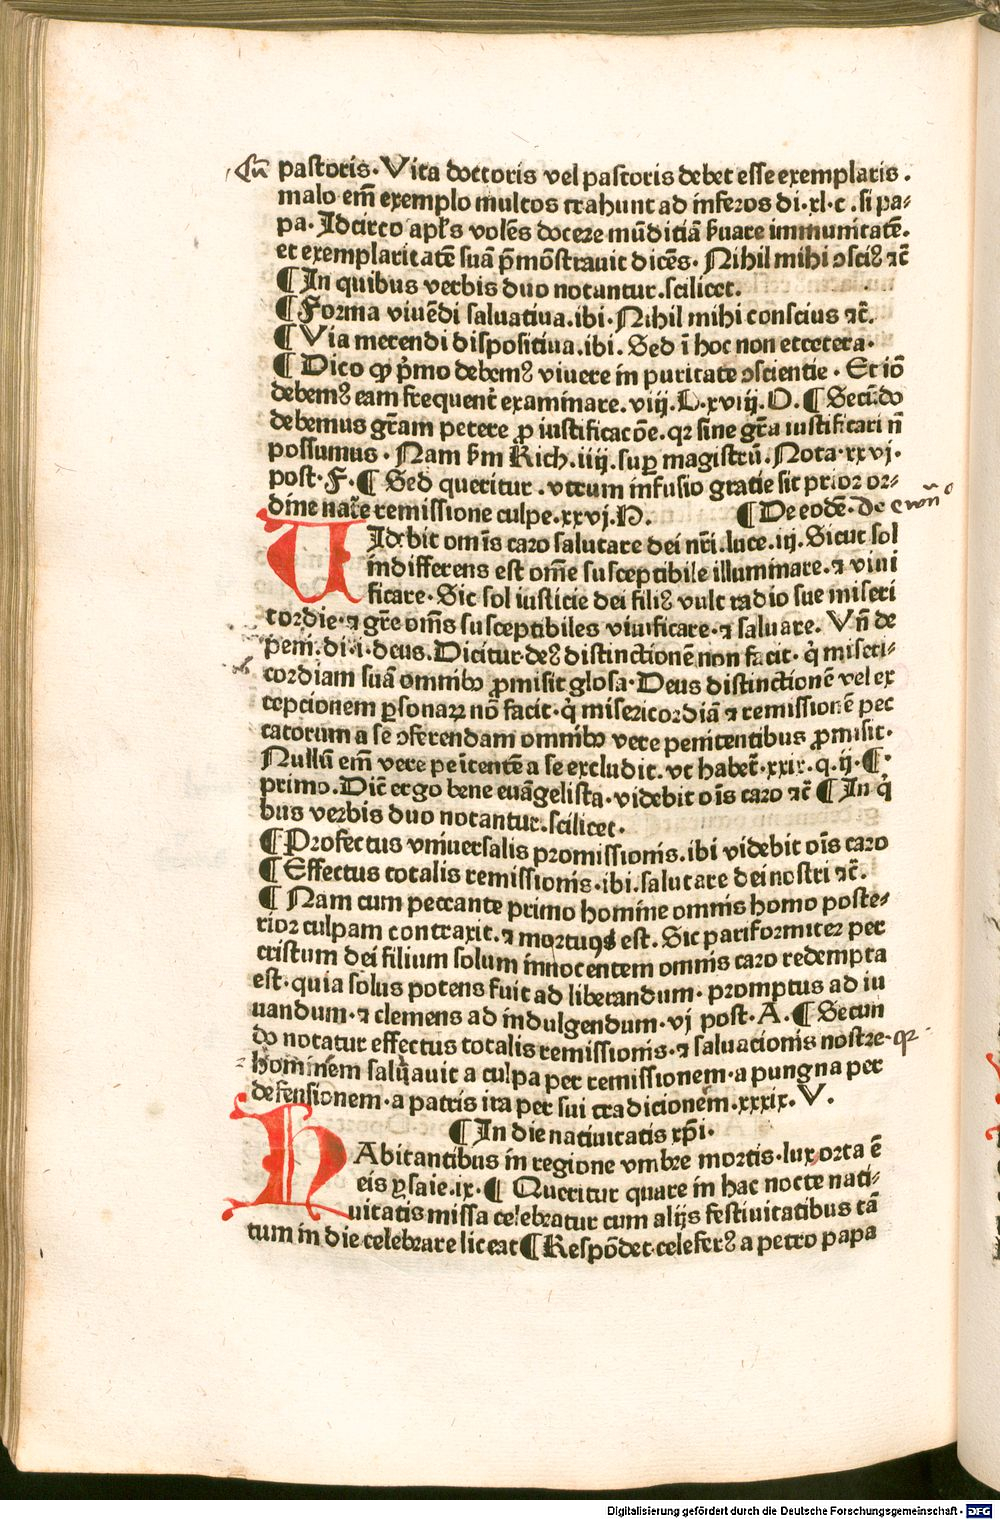 pastoris. Vita doctoris vel pastoris debet esse exemplaris.
malo em̄ exemplo multos trahunt ad inferos di.xl.c.si pa⸗
pa. Idcirco apl's volēs docere mūditiā ẜuare immunitatē.
et exemplaritatē suā p̄mōstrauit dicēs. Nihil mihi ↄsciꝰ ⁊c̄
¶ In quibus verbis duo notantur.scilicet.
¶ Forma viuēdi saluatiua.ibi. Nihil mihi conscius ⁊c̄.
¶ Via merendi dispositiua.ibi. Sed ī hoc non etcetera.
¶ Dico ꝙ p̄mo debemꝰ viuere in puritate ↄscientie. Et iō
debemꝰ eam frequent᷑ examinare.viij.L.xviij.O.¶ Secūdo
debemus gr̄am petere ꝓ iustificacōe.qꝛ sine gr̄a iustificari n̄
possumus. Nam ẜm Rich.iiij.suꝑ magistrū.Nota.xxvj.
post.F.¶ Sed queritur.vtrum infusio gratie sit prior or⸗
dine nat᷑e remissione culpe.xxvj.N. ¶ De eodē. De
VIdebit om̄is caro salutare dei nr̄i.luce.iij. Sicut sol
indifferens est om̄e susceptibile illuminare.⁊ viui
ficare. Sic sol iusticie dei filiꝰ vult radio sue miseri
cordie.⁊ gr̄e om̄s susceptibiles viuificare.⁊ saluare. Vn̄ de
peni.di.i.deus.Dicitur.deꝰ distinctionē non facit.q̇ miseri⸗
cordiam suā omnibꝰ ꝓmisit glosa. Deus distinctionē vel ex
cepcionem ꝑsonaꝝ nō facit.q̇ misericordiā ⁊ remissionē pec
catorum a se ↄferendam omnibꝰ vere penitentibus ꝓmisit.
Nullū em̄ vere peītentē a se excludit.vt habet᷑.xxix.q.ij.¶.
primo.Dic̄t ergo bene euāgelista.videbit oīs caro ⁊c̄ ¶ In q̇
bus verbis duo notantur.scilicet.
¶ Profectus vniuersalis promissionis.ibi videbit oīs caro
¶ Effectus totalis remissionis.ibi.salutare dei nostri ⁊c̄.
¶ Nam cum peccante primo homine omnis homo poste⸗
rior culpam contraxit.⁊ mortuꝰ est. Sic pariformiter per
cristum dei filium solum innocentem omnis caro redempta
est.quia solus potens fuit ad liberandum.promptus ad iu
uandum.⁊ clemens ad indulgendum.vj post.A.¶ Secun
do notatur effectus totalis remissionis.⁊ saluacionis nostre qꝛ
hominem saluauit a culpa per remissionem.a pungna per
defensionem.a patris ira per sui tradicionem.xxxix.V.
¶ In die natiuitatis xp̄i.
HAbitantibus in regione vmbre mortis.lux orta ē
eis ysaie.ix.¶ Queritur quare in hac nocte nati⸗
uitatis missa celebratur cum alijs festiuitatibus tā
tum in die celebrare liceat ¶ Respōdet.celeferꝰ a petro papa
Digitalisierung gefördert durch die Deutsche Forschungsgemeinschaft - DFG